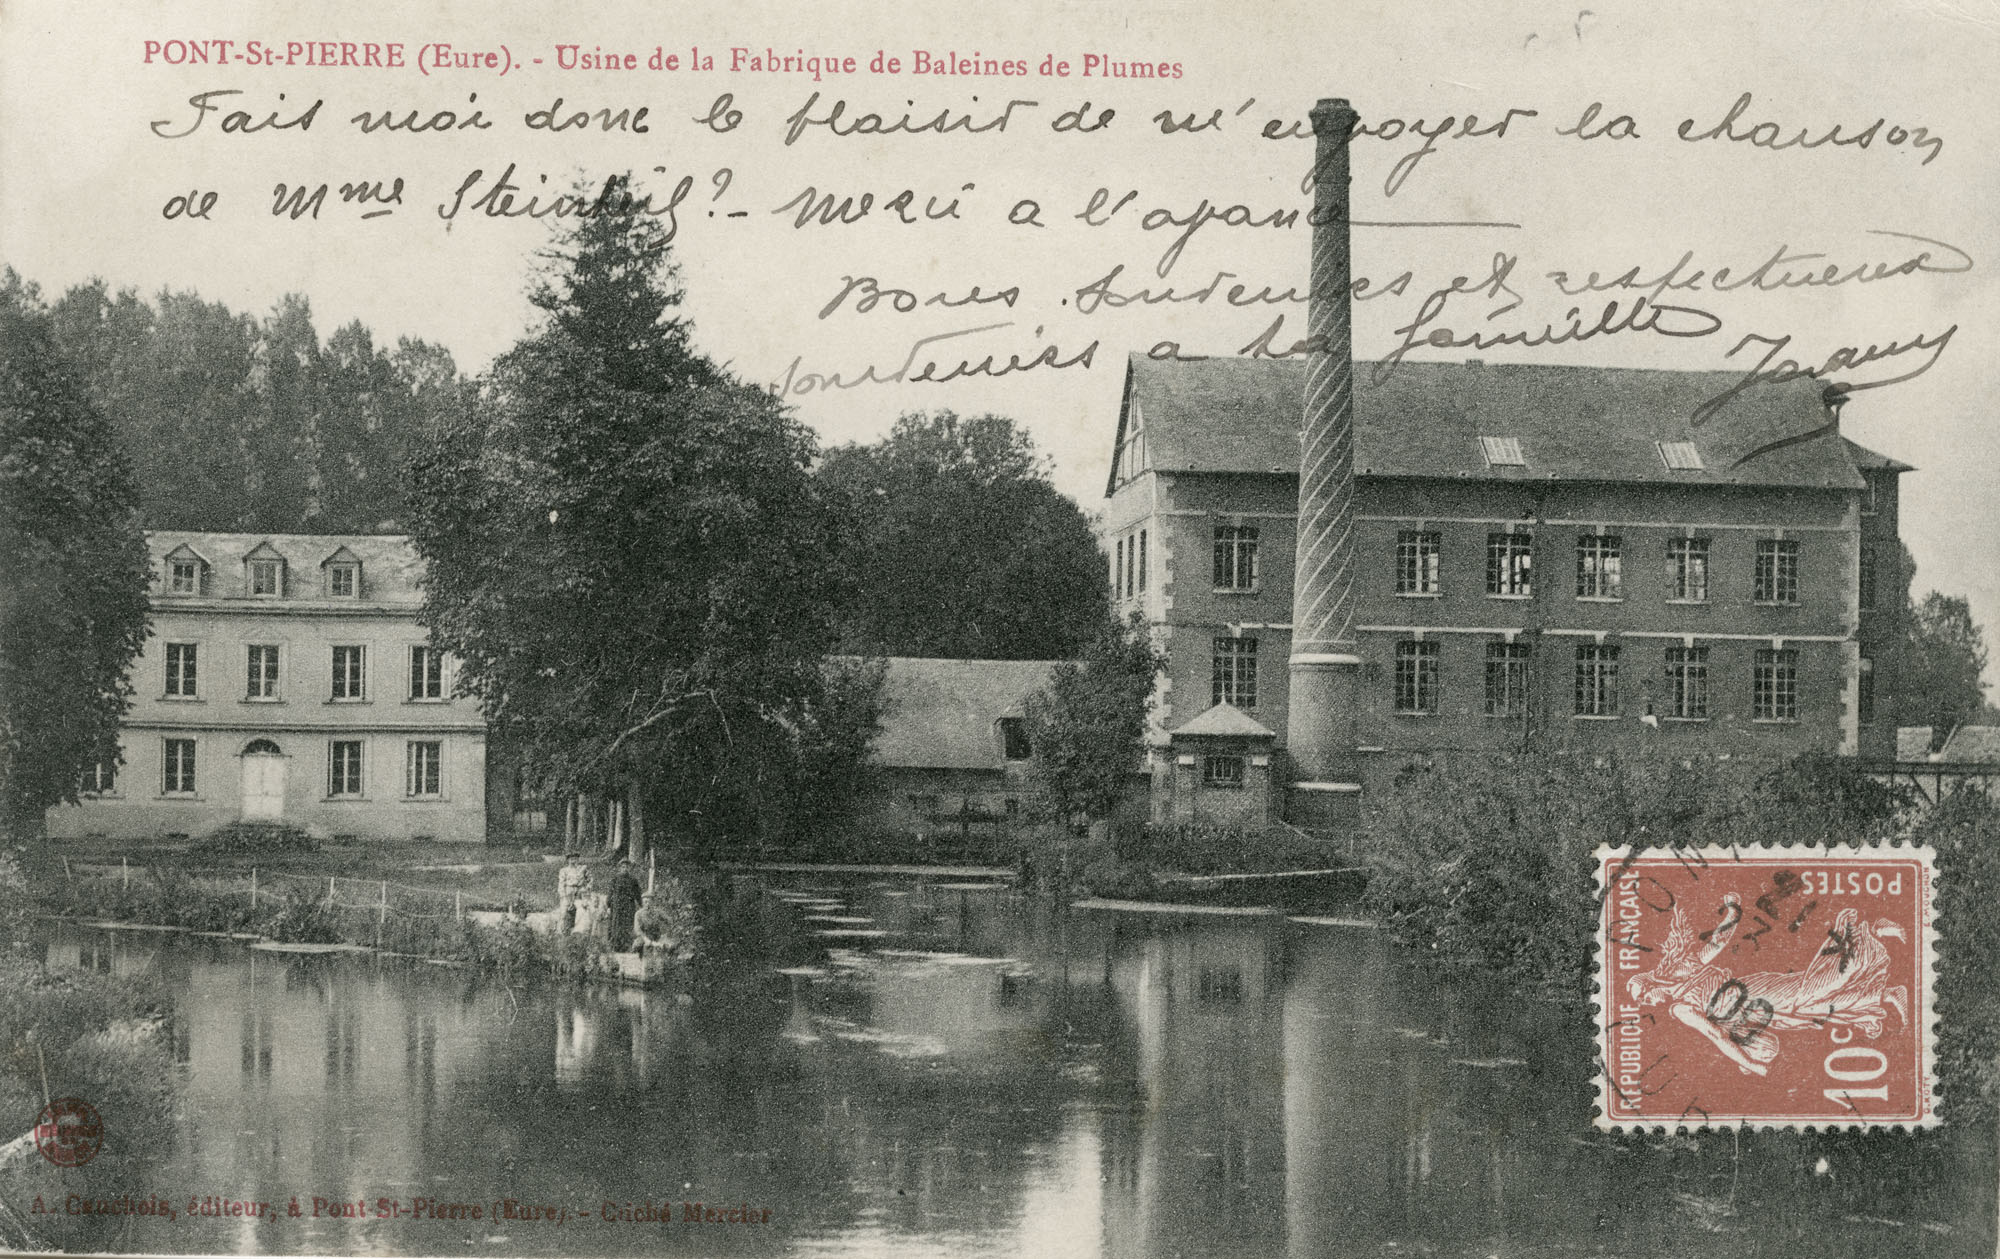 PONT-St-PIERRE (Eure). - Usine de la Fabrique de Baleines de Plumes
Fais moi donc le plaisir de m'envoyer la chanson
de Mme Steinheil? - Merci a l'avance
Bons souvenirs et respectueux
souvenirs a ta famille
A. Cauchois, éditeur, à Pont-St-Pierre (Eure). - Cliché Mercier
RÉPUBLIQUE FRANÇAISE
POSTES
10c
O. ROTY
E. MOUCHON
09
EURE